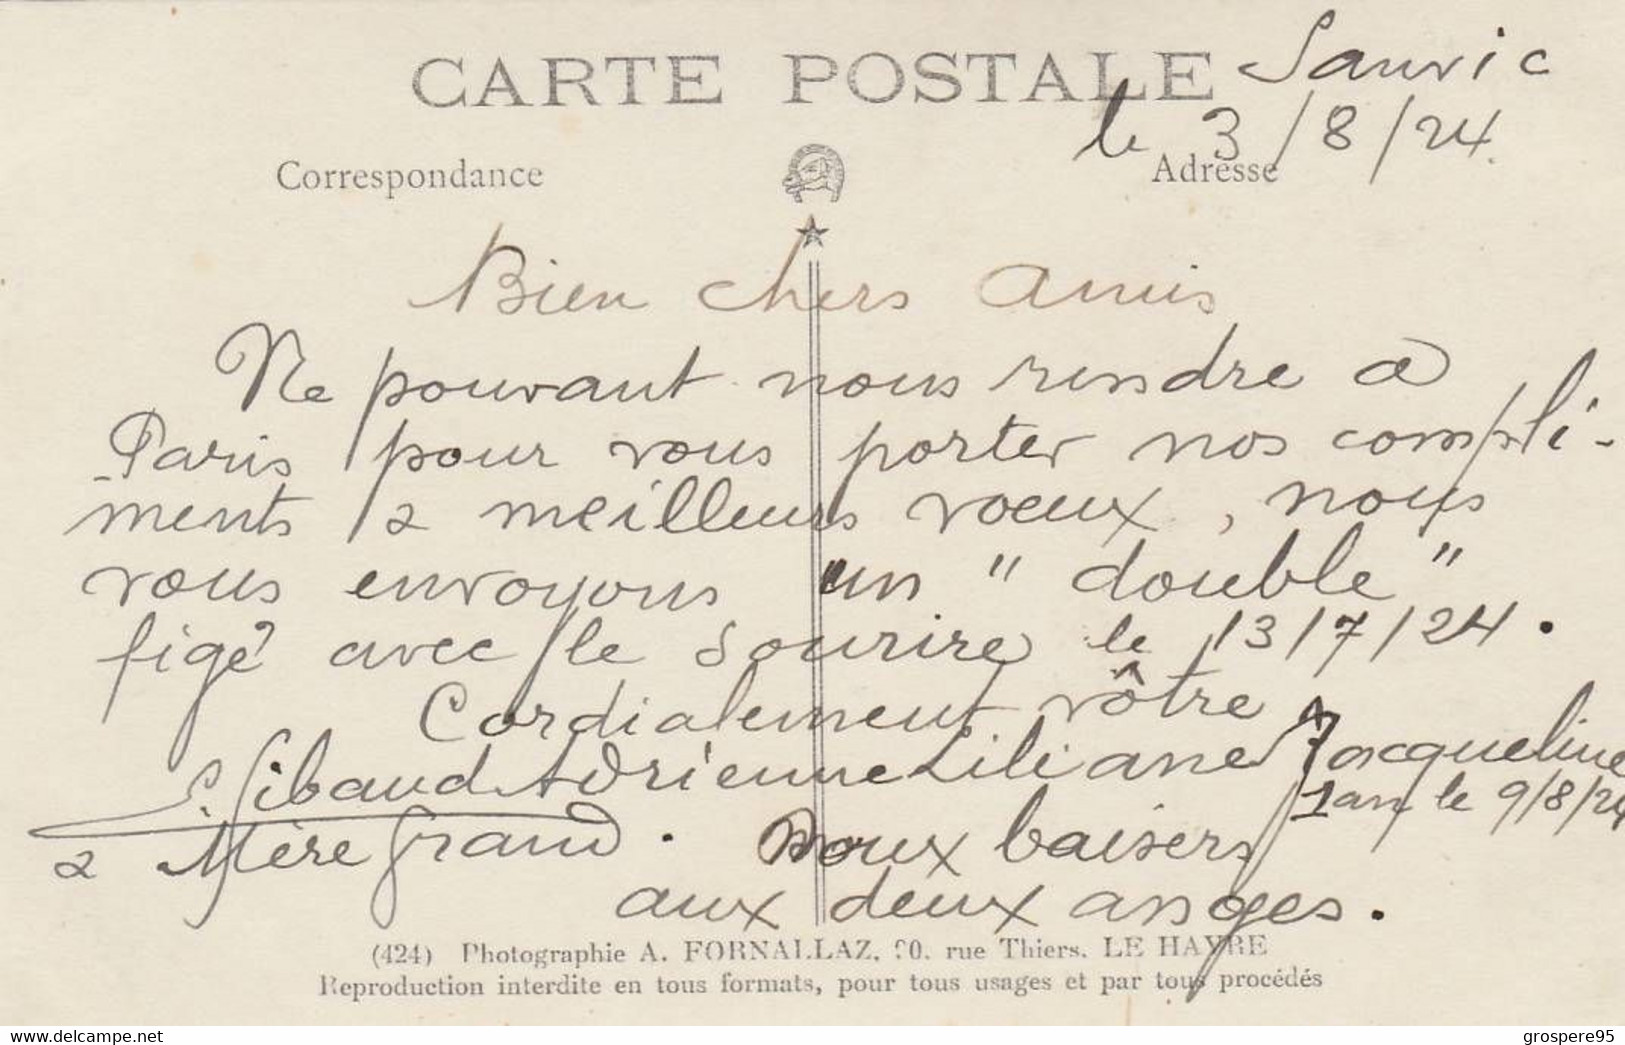 CARTE POSTALE
Sanvic
le 3/8/24.
Correspondance
Adresse
Bien chers Amis
Ne pouvant nous rendre a
Paris pour vous porter nos compli-
ments & meilleurs voeux, nous
vous envoyons un "double"
figé avec le sourire le 13/7/24.
Cordialement vôtre
Gibaud Adrienne Liliane Jacqueline
1 an le 9/8/24
& Mère Grand. Doux baisers
aux deux anges.
(424) Photographie A. FORNALLAZ, 90, rue Thiers, LE HAVRE
Reproduction interdite en tous formats, pour tous usages et par tous procédés
www.delcampe.net
grospere95